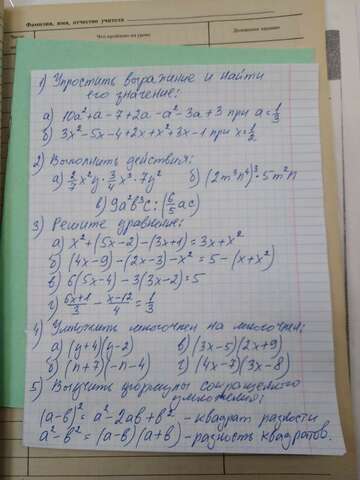 Фамилия, имя, отчество учителя
Что пройдено на уроке
Домашнее задание
1) Упростить выражение и найти
его значение:
а) 10a²+a-7+2a-a²-3a+3 при a=1/3
б) 3x²-5x-4+2x+x²+3x-1 при x=1/2
2) Выполнить действия:
а) 2/7 x²y·3/4 x³·7y² б) (2m³n⁴)³·5m²n
в) 9a²b³c:(6/5 ac)
3) Решите уравнение:
а) x²+(5x-2)-(3x+1)=3x+x²
б) (4x-9)-(2x-3)-x²=5-(x+x²)
в) 6(5x-4)-3(3x-2)=5
г) (6x+1)/3 - (x-12)/4 = 1/3
4) Умножить многочлен на многочлен:
а) (y+4)(y-2) в) (3x-5)(2x+9)
б) (n+7)(-n-4) г) (4x-7)(3x-8)
5) Выучить формулы сокращенного
умножения:
(a-b)²=a²-2ab+b² - квадрат разности
a²-b²=(a-b)(a+b) - разность квадратов.